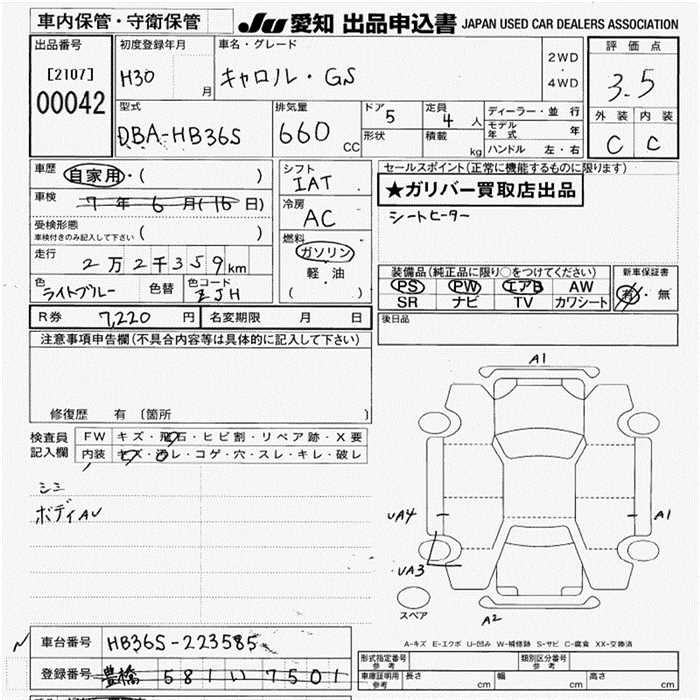 車内保管・守衛保管 JU 愛知 出品申込書 JAPAN USED CAR DEALERS ASSOCIATION
出品番号 [2107] 00042
初度登録年月 H30 月
車名・グレード キャロル・GS
2WD・4WD
評価点 3.5
外装 C 内装 C
型式 DBA-HB36S
排気量 660 CC
ドア 5 形状
定員 4 人 積載 kg
ディーラー・並行
モデル年式 年
ハンドル 左・右
車歴 自家用・( )
車検 7年6月(16日)
受検形態 車検付きのみ記入して下さい ( )
走行 2万2千359km
色 ライトブルー 色替 色コード ZJH
シフト IAT
冷房 AC
燃料 ガソリン 軽油 ( )
セールスポイント(正常に機能するものに限ります)
★ガリバー買取店出品
シートヒーター
装備品(純正品に限り○をつけてください)
PS PW エアB AW
SR ナビ TV カワシート
新車保証書 有・無
R券 7,220 円 名変期限 月 日
後日品
注意事項申告欄(不具合内容等は具体的に記入して下さい)
修復歴 有〔箇所 〕
検査員記入欄
FW キズ・飛石・ヒビ割・リペア跡・X要
内装 キズ・汚レ・コゲ・穴・スレ・キレ・破レ
シミ
ボディAU
A1
UA4
A1
UA3
スペア
A2
A-キズ E-エクボ U-凹み W-補修跡 S-サビ C-腐食 XX-交換済
車台番号 HB36S-223585
登録番号 豊橋 581 い 7501
形式指定番号 参考 類別区分番号 参考
車庫証明用 参考 長さ cm 幅 cm 高さ cm